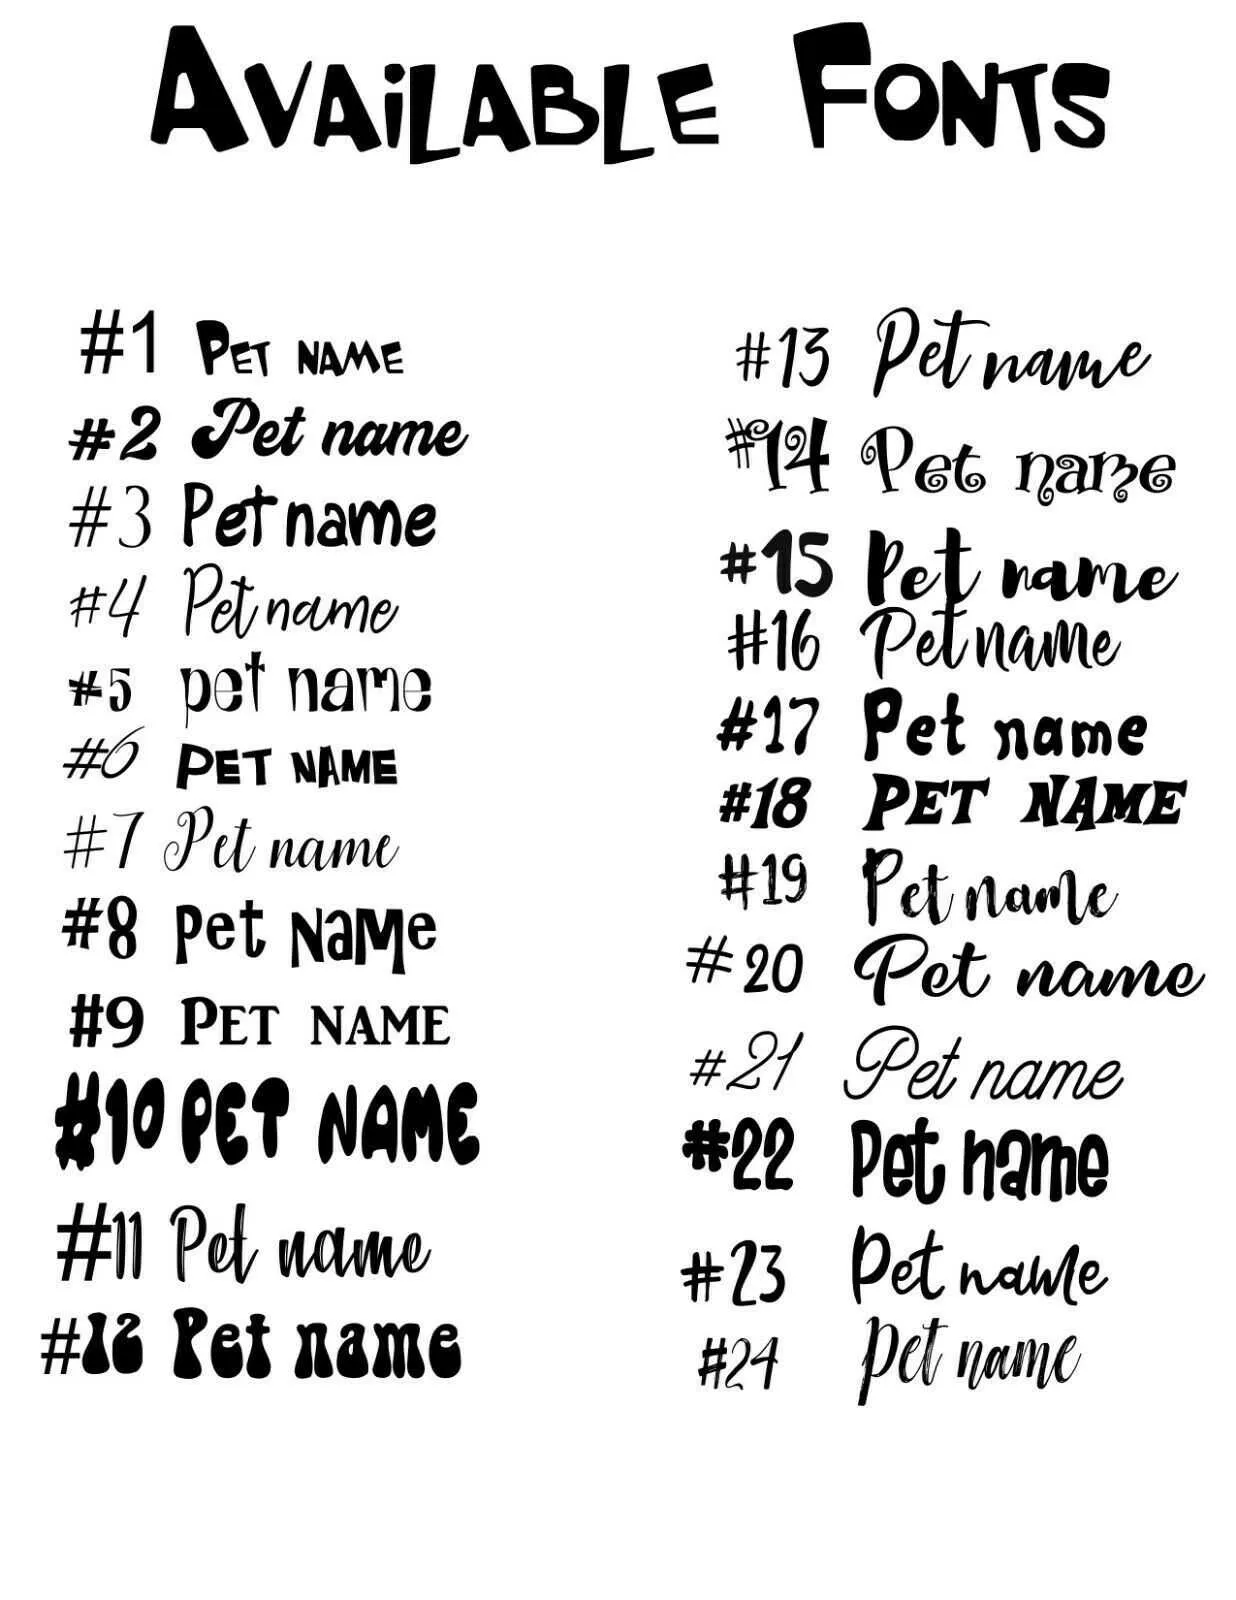 Available Fonts
#1 Pet name
#2 Pet name
#3 Pet name
#4 Pet name
#5 pet name
#6 Pet name
#7 Pet name
#8 Pet Name
#9 Pet name
#10 PET NAME
#11 Pet name
#12 Pet name
#13 Pet name
#14 Pet name
#15 Pet name
#16 Pet name
#17 Pet name
#18 Pet name
#19 Pet name
#20 Pet name
#21 Pet name
#22 Pet name
#23 Pet name
#24 Pet name